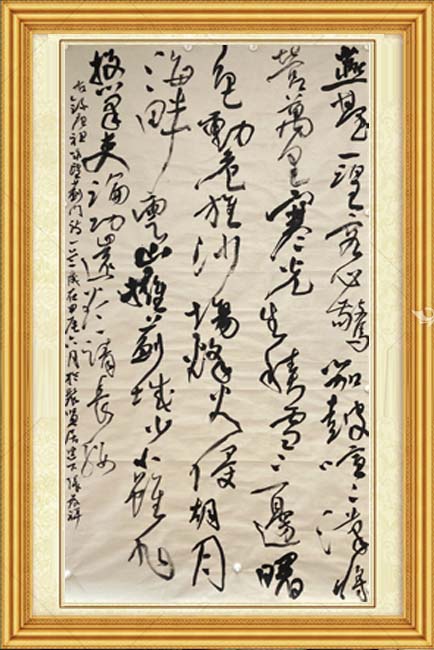 燕臺一望客心驚笳鼓喧喧漢將
營萬里寒光生積雪三邊曙
色動危旌沙場烽火侵胡月
海畔雲山擁薊城少小雖非
投筆吏論功還欲請長纓
右錄唐祖咏望薊門詩一首歲在甲辰六月於